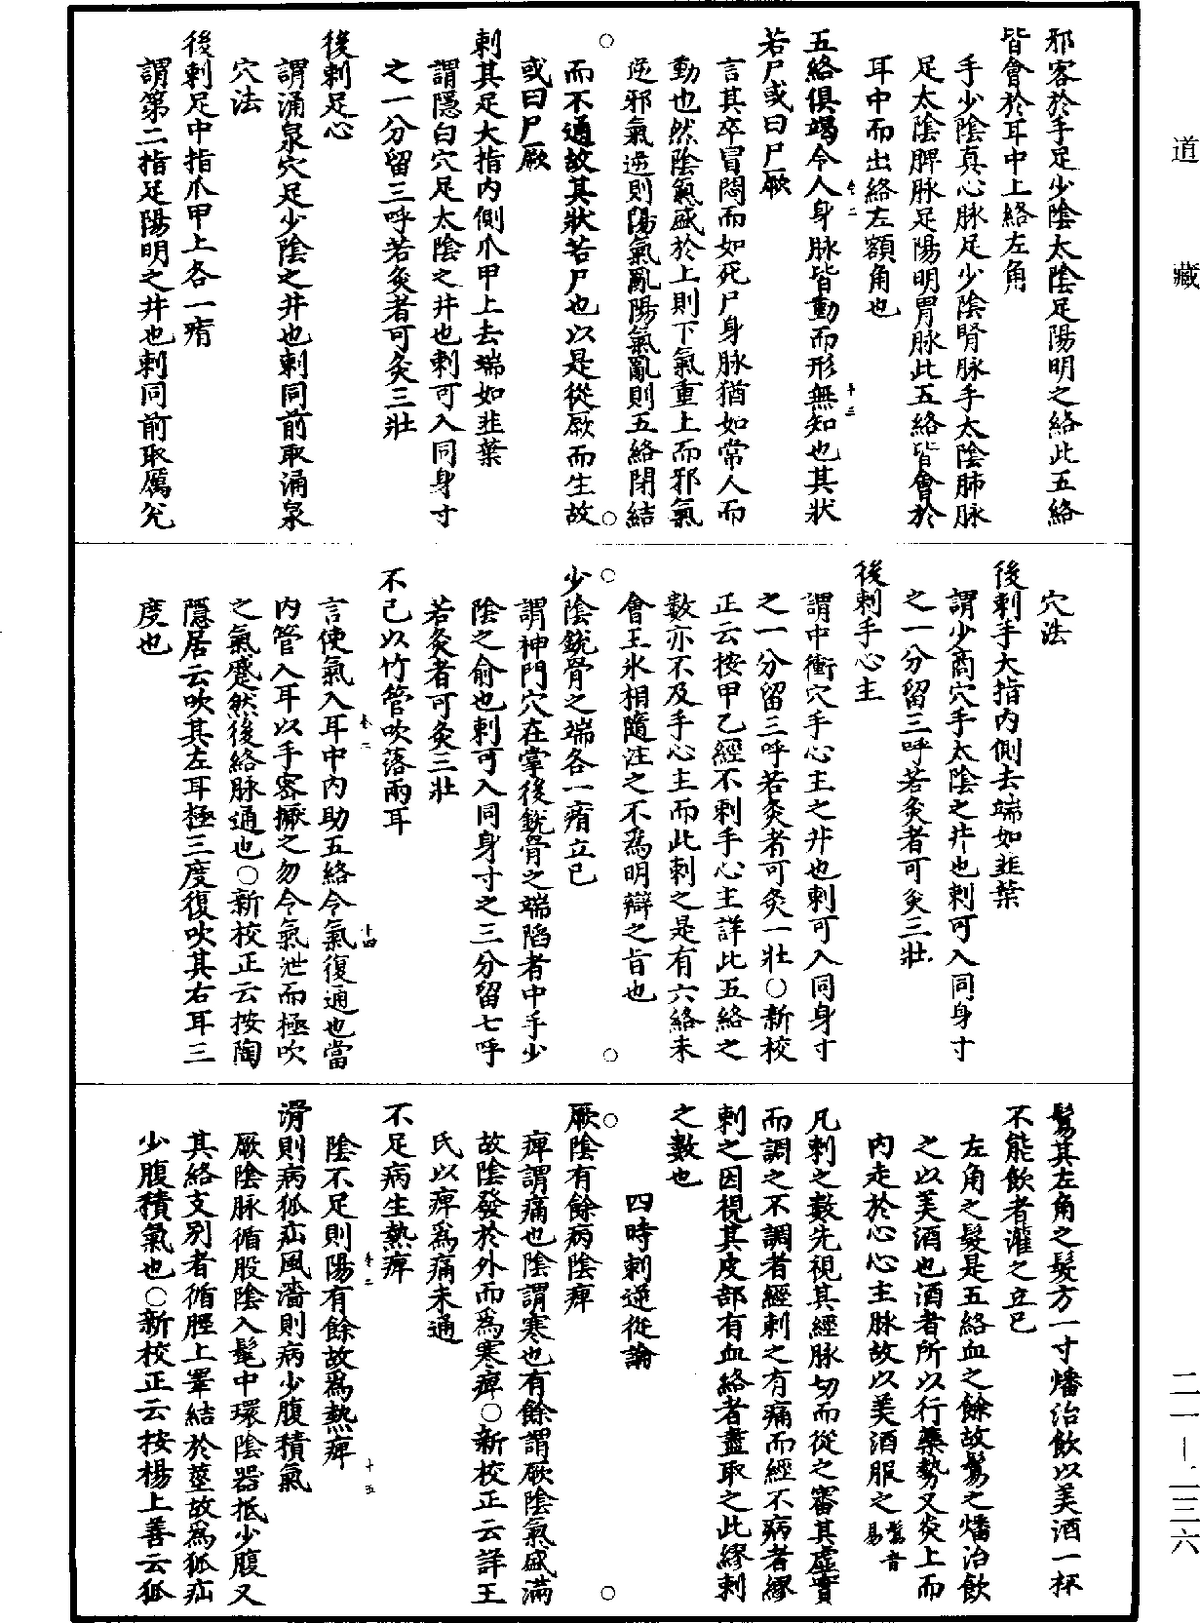 道藏
邪客於手足少陰太陰足陽明之絡此五絡
皆會於耳中上絡左角
手少陰真心脉足少陰腎脉手太陰肺脉
足太陰脾脉足陽明胃脉此五絡皆會於
耳中而出絡左額角也
五絡俱竭令人身脉皆動而形無知也其狀
若尸或曰尸厥
言其卒冒悶而如死尸身脉猶如常人而
動也然陰氣盛於上則下氣重上而邪氣
逆邪氣逆則陽氣亂陽氣亂則五絡閉結
而不通故其狀若尸也以是從厥而生故
或曰尸厥
刺其足大指内側爪甲上去端如韭葉
謂隱白穴足太陰之井也刺可入同身寸
之一分留三呼若灸者可灸三壯
後刺足心
謂涌泉穴足少陰之井也刺同前取涌泉
穴法
後刺足中指爪甲上各一痏
謂第二指足陽明之井也刺同前取厲兊
穴法
後刺手大指内側去端如韭葉
謂少商穴手太陰之井也刺可入同身寸
之一分留三呼若灸者可灸三壯
後刺手心主
謂中衝穴手心主之井也刺可入同身寸
之一分留三呼若灸者可灸一壯○新校
正云按甲乙經不刺手心主詳此五絡之
數亦不及手心主而此刺之是有六絡未
會王氷相隨注之不爲明辯之旨也
少陰銳骨之端各一痏立已
謂神門穴在掌後銳骨之端陷者中手少
陰之俞也刺可入同身寸之三分留七呼
若灸者可灸三壯
不已以竹管吹落兩耳
言使氣入耳中内助五絡令氣復通也當
内管入耳以手密擫之勿令氣泄而極吹
之氣蹙然後絡脉通也○新校正云按陶
隱居云吹其左耳極三度復吹其右耳三
度也
鬄其左角之髮方一寸燔治飲以美酒一杯
不能飲者灌之立已
左角之髮是五絡血之餘故鬄之燔治飲
之以美酒也酒者所以行藥勢又炎上而
内走於心心主脉故以美酒服之鬄音易
凡刺之數先視其經脉切而從之審其虚實
而調之不調者經刺之有痛而經不病者繆
刺之因視其皮部有血絡者盡取之此繆刺
之數也
四時刺逆從論
厥陰有餘病陰痺
痺謂痛也陰謂寒也有餘謂厥陰氣盛滿
故陰發於外而爲寒痺○新校正云詳王
氏以痺爲痛未通
不足病生熱痺
陰不足則陽有餘故爲熱痺
滑則病狐疝風濇則病少腹積氣
厥陰脉循股陰入髦中環陰器抵少腹又
其絡支别者循脛上睪結於莖故爲狐疝
少腹積氣也○新校正云按楊上善云狐
卷二 十三
卷二 十四
卷二 十五
二一—一三六